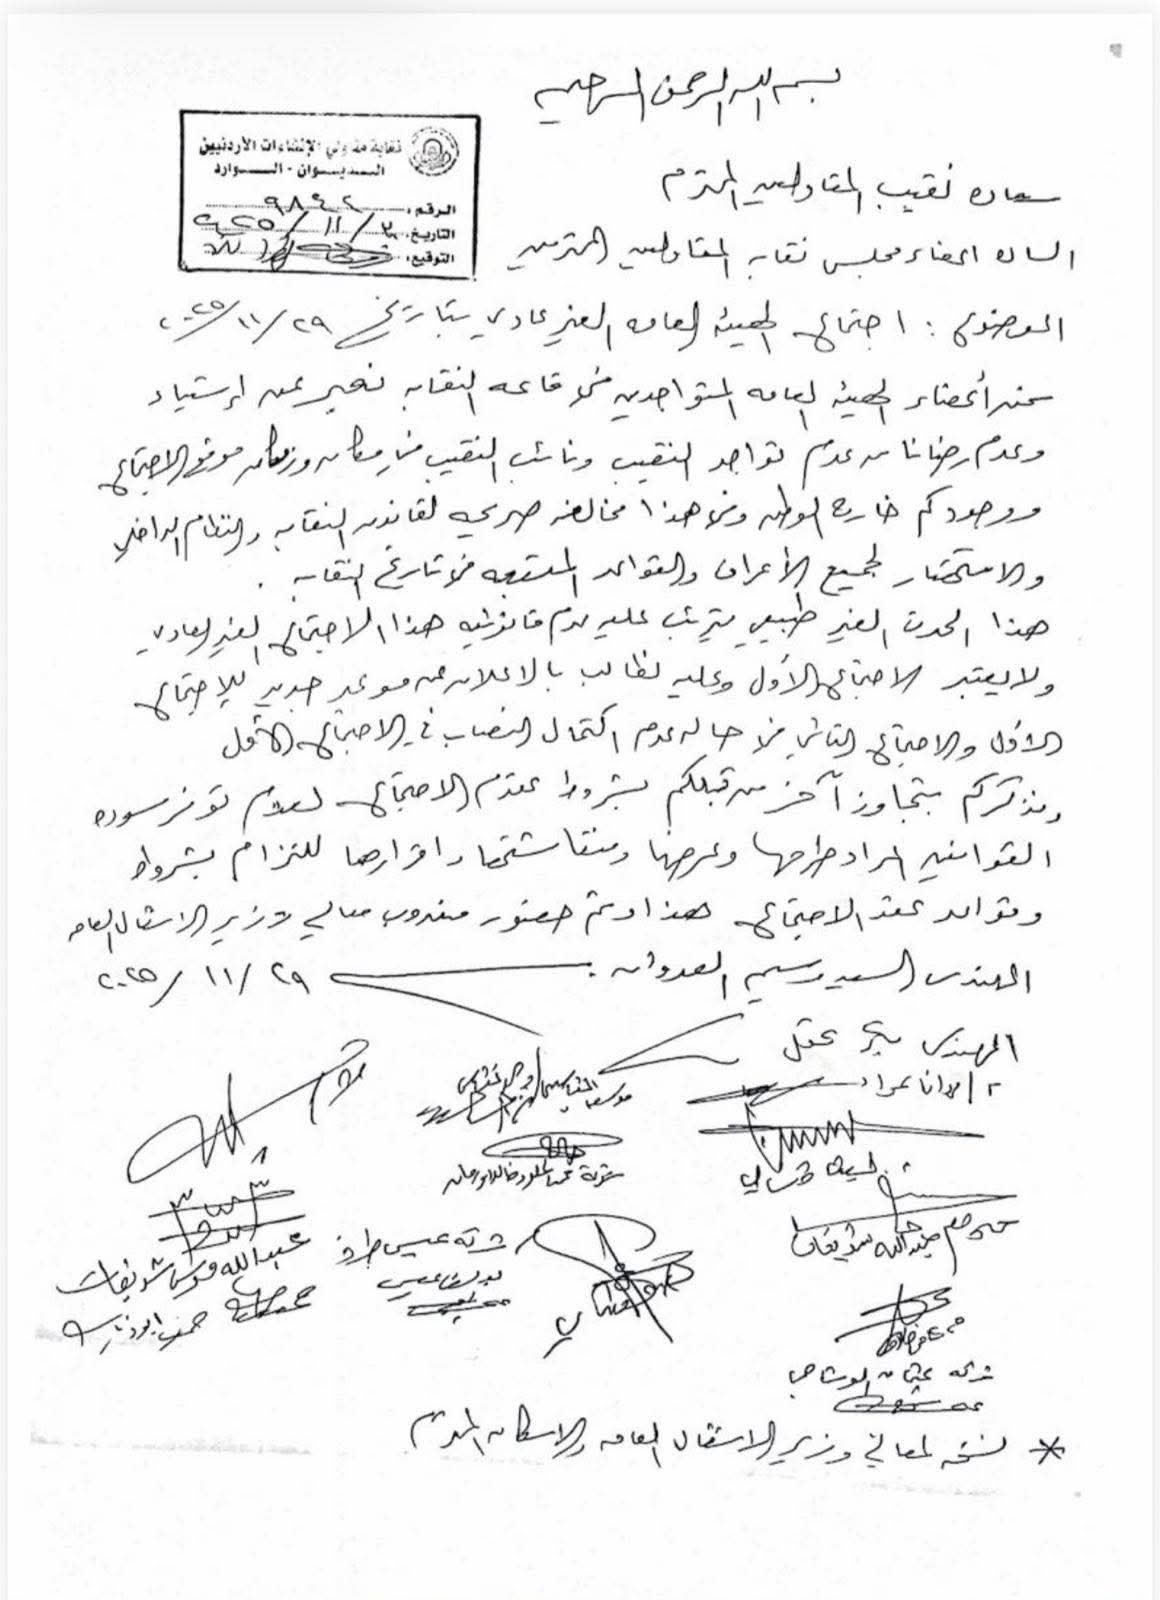 بسم الله الرحمن الرحيم
نقابة مقاولي الإنشاءات الأردنيين
الديوان - الوارد
الرقم: ٩٨٤٢
التاريخ: ٣٠/١١/٢٠٢٥
التوقيع:
سعاده نقيب المقاولين المحترم
الساده اعضاء مجلس نقابه المقاولين المحترمين
الموضوع : اجتماع الهيئه العامه الغير عادي بتاريخ ٢٩/١١/٢٠٢٥
نحن أعضاء الهيئه العامه المتواجدين في قاعه النقابه نعبر عن إستياء
وعدم رضانا من عدم تواجد النقيب ونائب النقيب في مكان وزمان موقع الاجتماع
ووجودكم خارج الوطن وفي هذا مخالفه صريحه لقانون النقابه والنظام الداخلي
والاستحقار لجميع الأعراف والقواعد المتبعه في تاريخ النقابه .
هذا الحدث الغير طبيعي يترتب عليه عدم قانونيه هذا الاجتماع الغير العادي
ولا يعتبر الاجتماع الأول وعليه نطالب بالاعلان عن موعد جديد للاجتماع
الأول والاجتماع الثاني في حاله عدم اكتمال النصاب في الاجتماع الأول
ونذكركم بتجاوز آخر من قبلكم بشروط عقد الاجتماع لعدم توفر مسوده
القوانين المراد طرحها وعرضها ومناقشتها واقرارها للالتزام بشروط
وقواعد عقد الاجتماع هذا وتم حضور مندوب معالي وزير الاشغال العامه
المهندس السيد وسيم العدوان . ٢٩/١١/٢٠٢٥
المهندس عقل
م/ عواد
عبدالله شويفات
شركه عيسى
شركه عثمان
* نسخه لمعالي وزير الاشغال العامه والاسكان المحترم